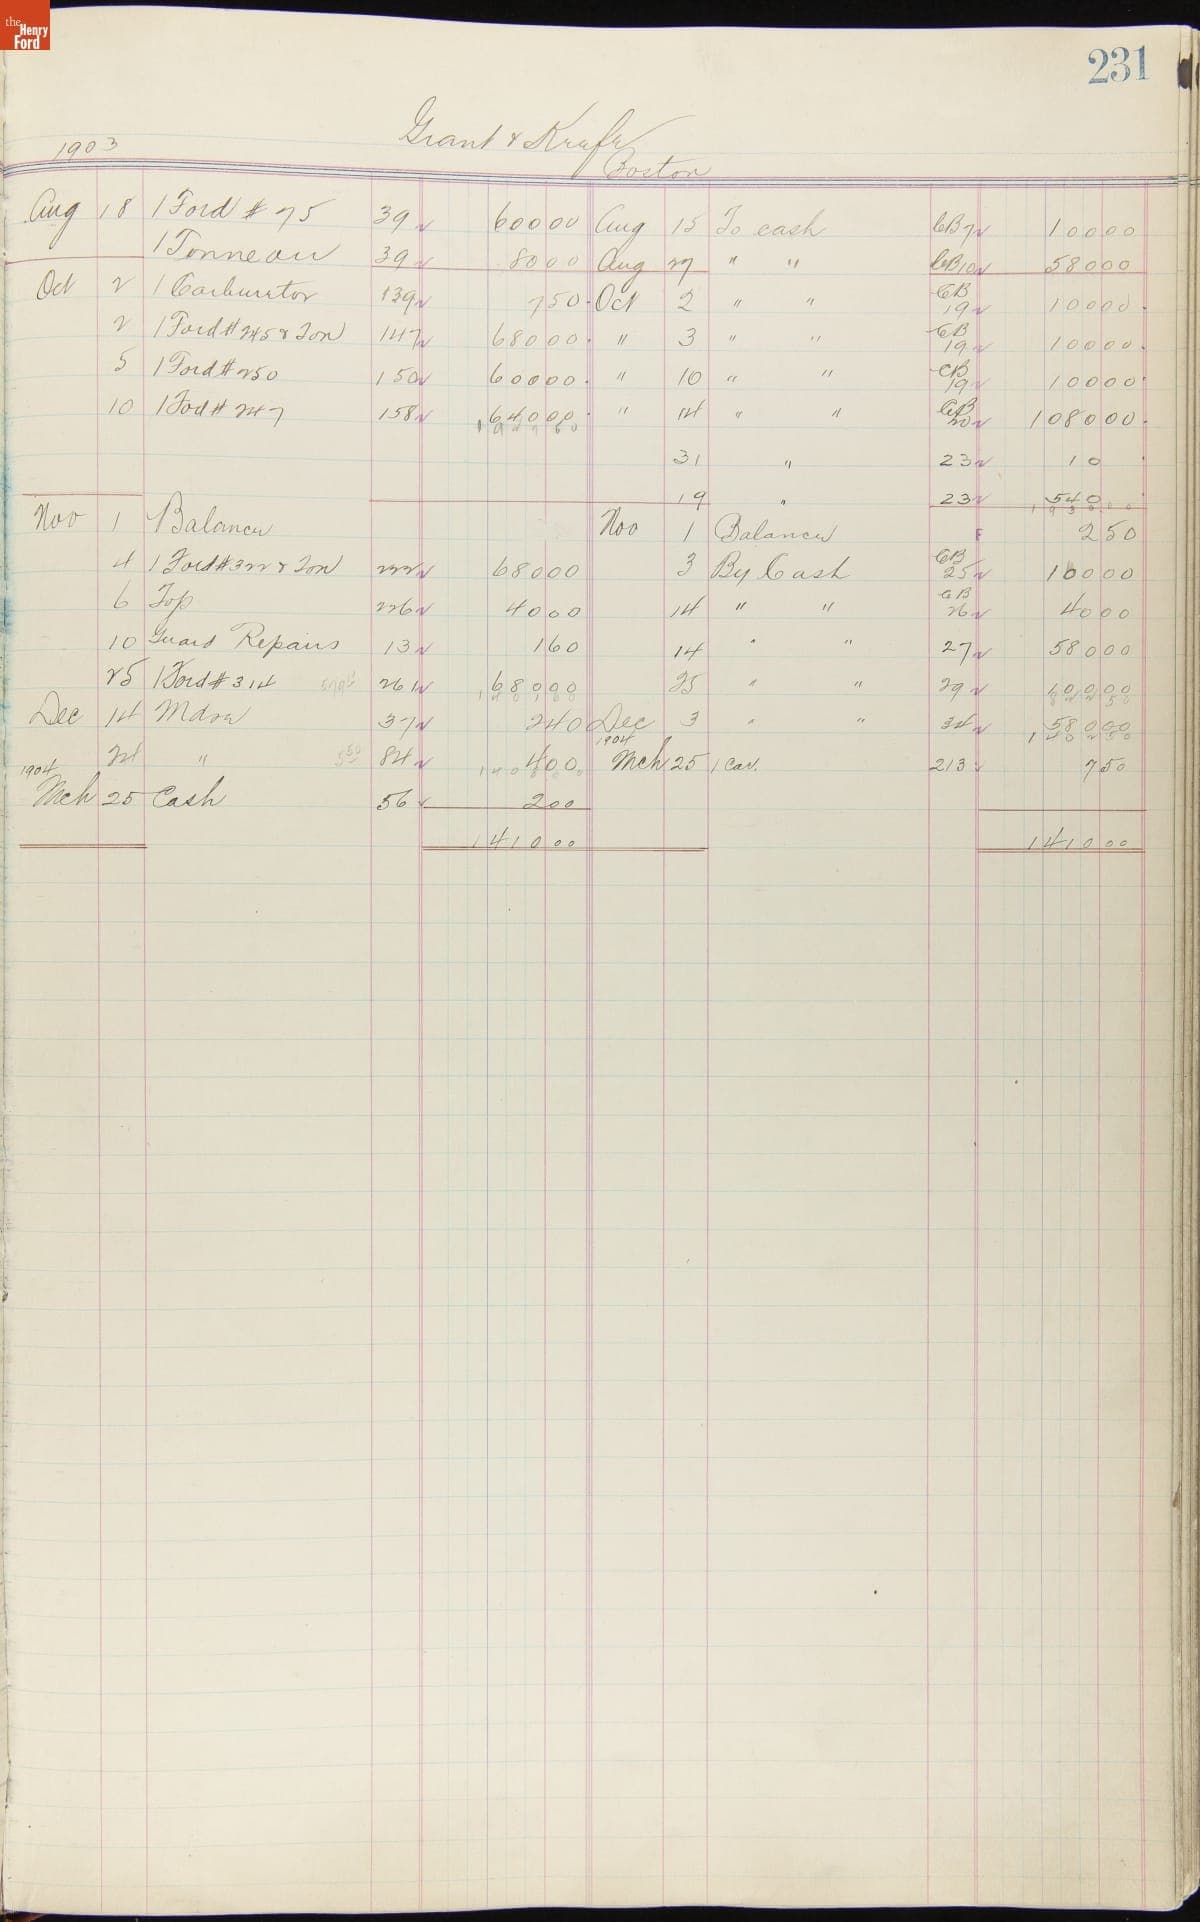 the Henry Ford
231
1903
Grant &
Boston
Aug 18 1 Ford # 75 39 60000 Aug 15 To cash CB7 10000
1 Tonneau 39 8000 Aug 27 " " CB10 58000
Oct 2 1 Carburetor 139 750 Oct 2 " " CB 19 10000
2 1 Ford # 245 & Ton 147 68000 " 3 " " CB 19 10000
5 1 Ford # 250 150 60000 " 10 " " CB 19 10000
10 1 Fod # 247 158 64000 " 14 " " CB 20 108000
31 " 23 10
19 " 23 540
Nov 1 Balance Nov 1 Balance F 250
4 1 Ford # 322 & Ton 222 68000 3 By Cash CB 25 10000
6 Top 226 4000 14 " " CB 26 4000
10 Guard Repairs 13 160 14 " " 27 58000
25 1 Ford # 314 261 68000 25 " " 29
Dec 14 Mdse 37 240 Dec 3 " " 34 58000
24 " 550 84 400 1904 Mch 25 1 Car. 213 750
1904 Mch 25 Cash 56 200
141000 141000